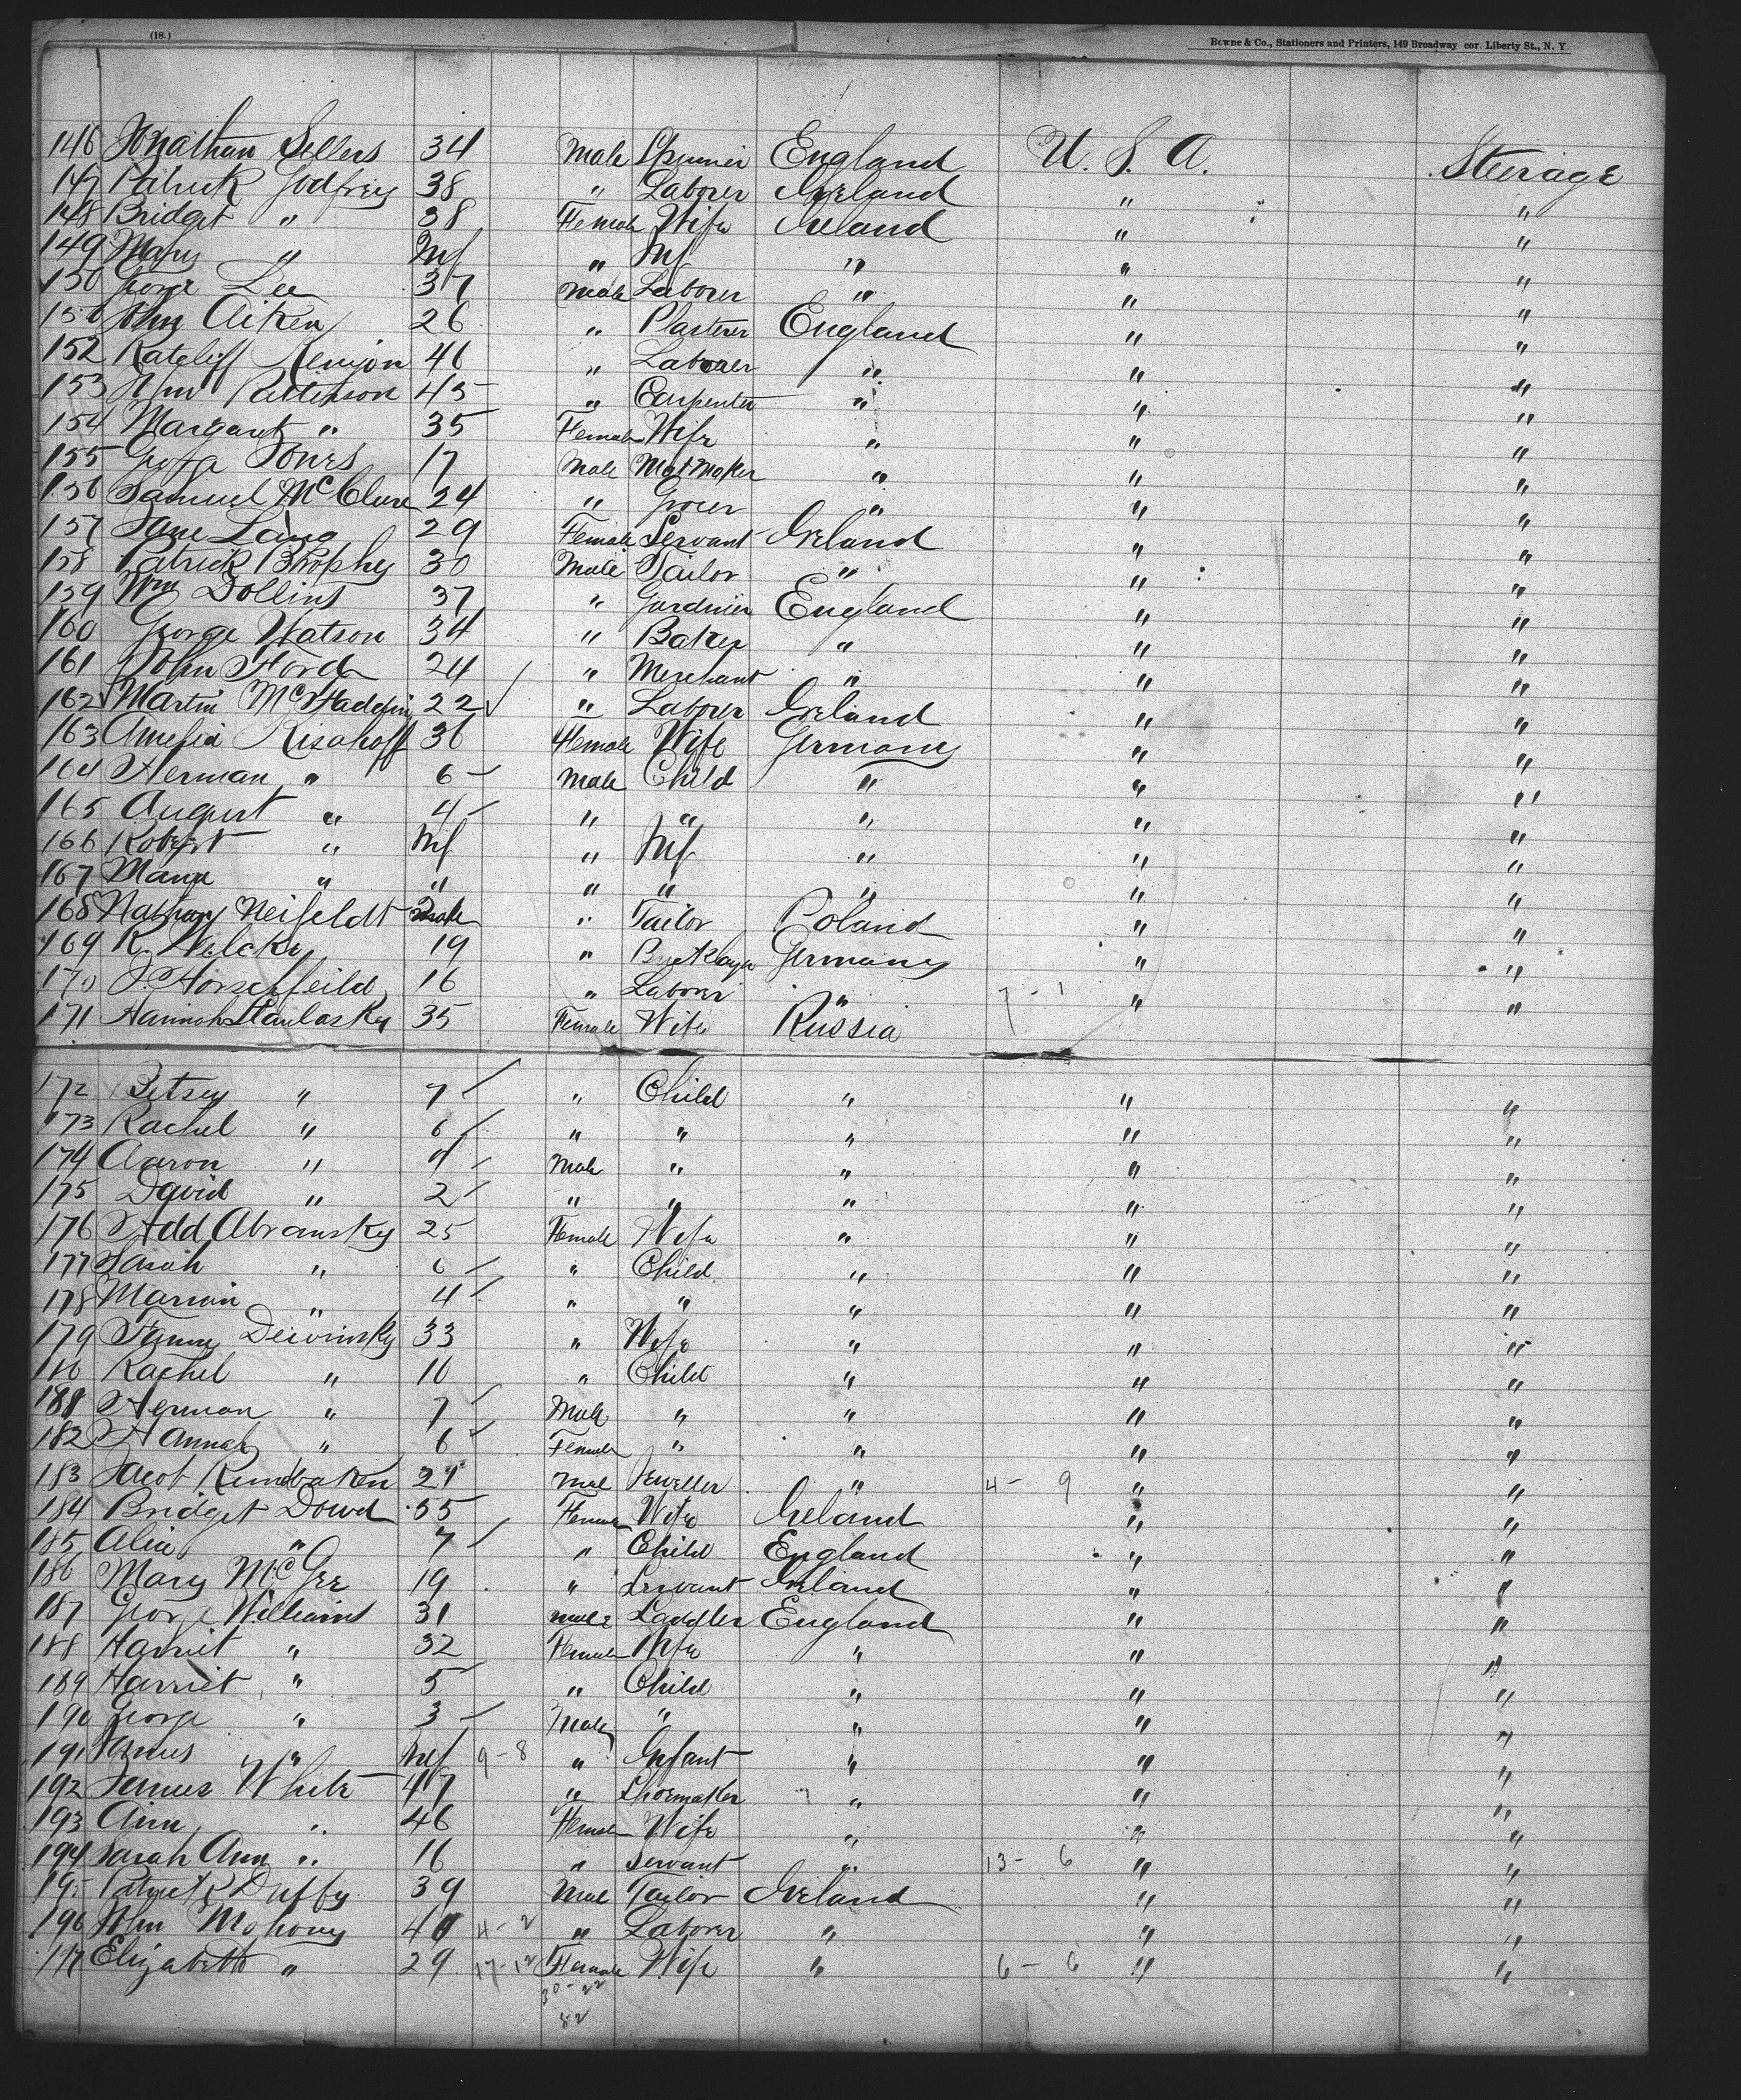 (18.)
Bowne & Co., Stationers and Printers, 149 Broadway cor. Liberty St., N. Y
146 Jonathan Sellers 34 Male Spinner England U. S. A. Steerage
147 Patrick Godfrey 38 " Laborer Ireland " "
148 Bridget " 38 Female Wife Ireland " "
149 Mary " Inf " Inf " " "
150 George Lee 37 Male Laborer " " "
151 John Aiken 26 " Plasterer England " "
152 Ratcliff Kenyon 46 " Laborer " " "
153 Wm Patterson 45 " Carpenter " " "
154 Margaret " 35 Female Wife " " "
155 George Jones 17 Male Mat Maker " " "
156 Samuel McClure 24 " Grocer " " "
157 Jane Lang 29 Female Servant Ireland " "
158 Patrick Brophy 30 Male Tailor " " "
159 Wm Dollins 37 " Gardnier England " "
160 George Watson 34 " Baker " " "
161 John Ford 24 " Merchant " " "
162 Martin McFaddin 22 " Laborer Ireland " "
163 Amelia Risohoff 36 Female Wife Germany " "
164 Herman " 6 Male Child " " "
165 August " 4 " " " " "
166 Robert " Inf " Inf " " "
167 " " " " " " "
168 Nathan Neifeldt " Tailor Poland " "
169 R. 19 " Germany " "
170 J. 16 " Laborer " 7 - 1 " "
171 Hannah 35 Female Wife Russia
172 Betsey " 7 " Child " " "
173 Rachel " 6 " " " " "
174 Aaron " 4 Male " " " "
175 David " 2 " " " " "
176 Abramsky 25 Female Wife " " "
177 Sarah " 6 " Child " " "
178 " 4 " " " " "
179 Fanny 33 " Wife " " "
180 Rachel " 10 " Child " " "
181 Herman " 7 Male " " " "
182 Hannah " 6 Female " " " "
183 Jacob 21 Male Jeweller " 4 - 9 " "
184 Bridget Dowd 35 Female Wife Ireland " "
185 Alice " 7 " Child England " "
186 Mary McGee 19 " Servant Ireland " "
187 George Williams 31 male Saddler England " "
188 Harriet " 32 Female Wife " " "
189 Harriet " 5 " Child " " "
190 George " 3 Male " " " "
191 James " Inf 9 - 8 " Infant " " "
192 James White 47 " Shoemaker " " "
193 Ann " 46 Female Wife " " "
194 Sarah Ann " 16 " Servant " 13 - 6 " "
195 Patrick Duffy 39 Male Tailor Ireland " "
196 John Mahony 4 - 2 " Laborer " " "
197 Elizabeth " 29 17-12 Female Wife " 6 - 6 " "
30 - 22
52